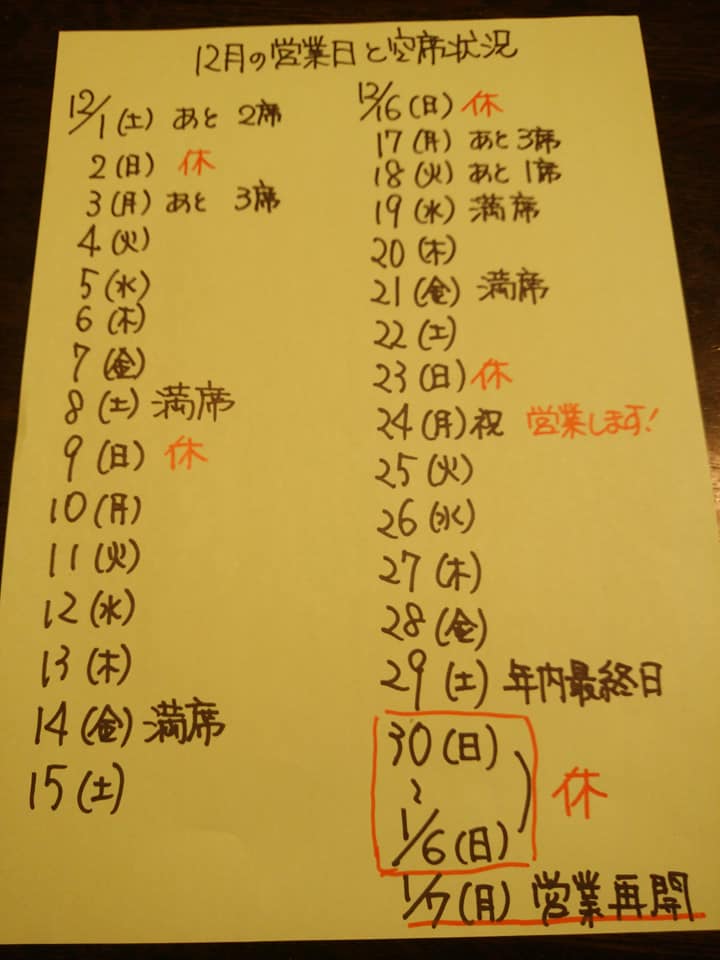 12月の営業日と空席状況
12/1(土) あと 2席
2(日) 休
3(月) あと 3席
4(火)
5(水)
6(木)
7(金)
8(土) 満席
9(日) 休
10(月)
11(火)
12(水)
13(木)
14(金) 満席
15(土)
12/16(日) 休
17(月) あと3席
18(火) あと1席
19(水) 満席
20(木)
21(金) 満席
22(土)
23(日) 休
24(月)祝 営業します!
25(火)
26(水)
27(木)
28(金)
29(土) 年内最終日
30(日)
〜
1/6(日)
休
1/7(月) 営業再開